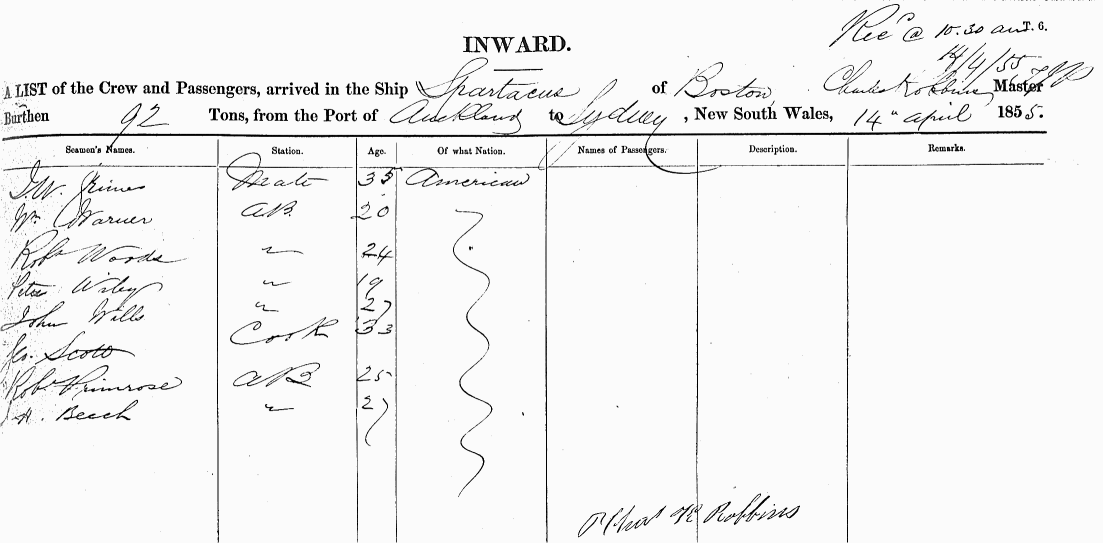 Rec'd @ 10.30 am T. 6.
14/4/55
INWARD.
A LIST of the Crew and Passengers, arrived in the Ship Spartacus of Boston, Charles Robbins Master
Burthen 92 Tons, from the Port of Auckland to Sydney, New South Wales, 14" april 1855.
Seamen's Names. Station. Age. Of what Nation. Names of Passengers. Description. Remarks.
Mate 35 American
Wm Warner AB 20
Robt Woods " 24
Peter Wiley " 19
John Wills " 27
Geo. Scott Cook 33
Robt Primrose AB 25
H. Beech " 27
Robbins